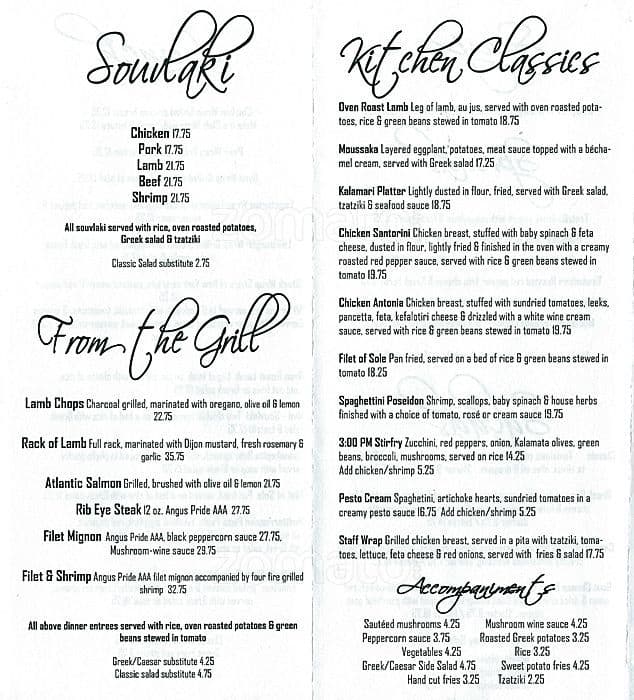 Souvlaki
Chicken 17.75
Pork 17.75
Lamb 21.75
Beef 21.75
Shrimp 21.75
All souvlaki served with rice, oven roasted potatoes,
Greek salad & tzatziki
Classic Salad substitute 2.75
From the Grill
Lamb Chops Charcoal grilled, marinated with oregano, olive oil & lemon
22.75
Rack of Lamb Full rack, marinated with Dijon mustard, fresh rosemary &
garlic 35.75
Atlantic Salmon Grilled, brushed with olive oil & lemon 21.75
Rib Eye Steak 12 oz. Angus Pride AAA 27.75
Filet Mignon Angus Pride AAA, black peppercorn sauce 27.75,
Mushroom-wine sauce 29.75
Filet & Shrimp Angus Pride AAA filet mignon accompanied by four fire grilled
shrimp 32.75
All above dinner entrees served with rice, oven roasted potatoes & green
beans stewed in tomato
Greek/Caesar substitute 4.25
Classic salad substitute 4.75
Kitchen Classics
Oven Roast Lamb Leg of lamb, au jus, served with oven roasted pota-
toes, rice & green beans stewed in tomato 18.75
Moussaka Layered eggplant, potatoes, meat sauce topped with a bécha-
mel cream, served with Greek salad 17.25
Kalamari Platter Lightly dusted in flour, fried, served with Greek salad,
tzatziki & seafood sauce 18.75
Chicken Santorini Chicken breast, stuffed with baby spinach & feta
cheese, dusted in flour, lightly fried & finished in the oven with a creamy
roasted red pepper sauce, served with rice & green beans stewed in
tomato 19.75
Chicken Antonia Chicken breast, stuffed with sundried tomatoes, leeks,
pancetta, feta, kefalotiri cheese & drizzled with a white wine cream
sauce, served with rice & green beans stewed in tomato 19.75
Filet of Sole Pan fried, served on a bed of rice & green beans stewed in
tomato 18.25
Spaghettini Poseidon Shrimp, scallops, baby spinach & house herbs
finished with a choice of tomato, rosé or cream sauce 19.75
3:00 PM Stirfry Zucchini, red peppers, onion, Kalamata olives, green
beans, broccoli, mushrooms, served on rice 14.25
Add chicken/shrimp 5.25
Pesto Cream Spaghetini, artichoke hearts, sundried tomatoes in a
creamy pesto sauce 16.75 Add chicken/shrimp 5.25
Staff Wrap Grilled chicken breast, served in a pita with tzatziki, toma-
toes, lettuce, feta cheese & red onions, served with fries & salad 17.75
Accompaniments
Sautéed mushrooms 4.25 Mushroom wine sauce 4.25
Peppercorn sauce 3.75 Roasted Greek potatoes 3.25
Vegetables 4.25 Rice 3.25
Greek/Caesar Side Salad 4.75 Sweet potato fries 4.25
Hand cut fries 3.25 Tzatziki 2.25
zomato
zomato